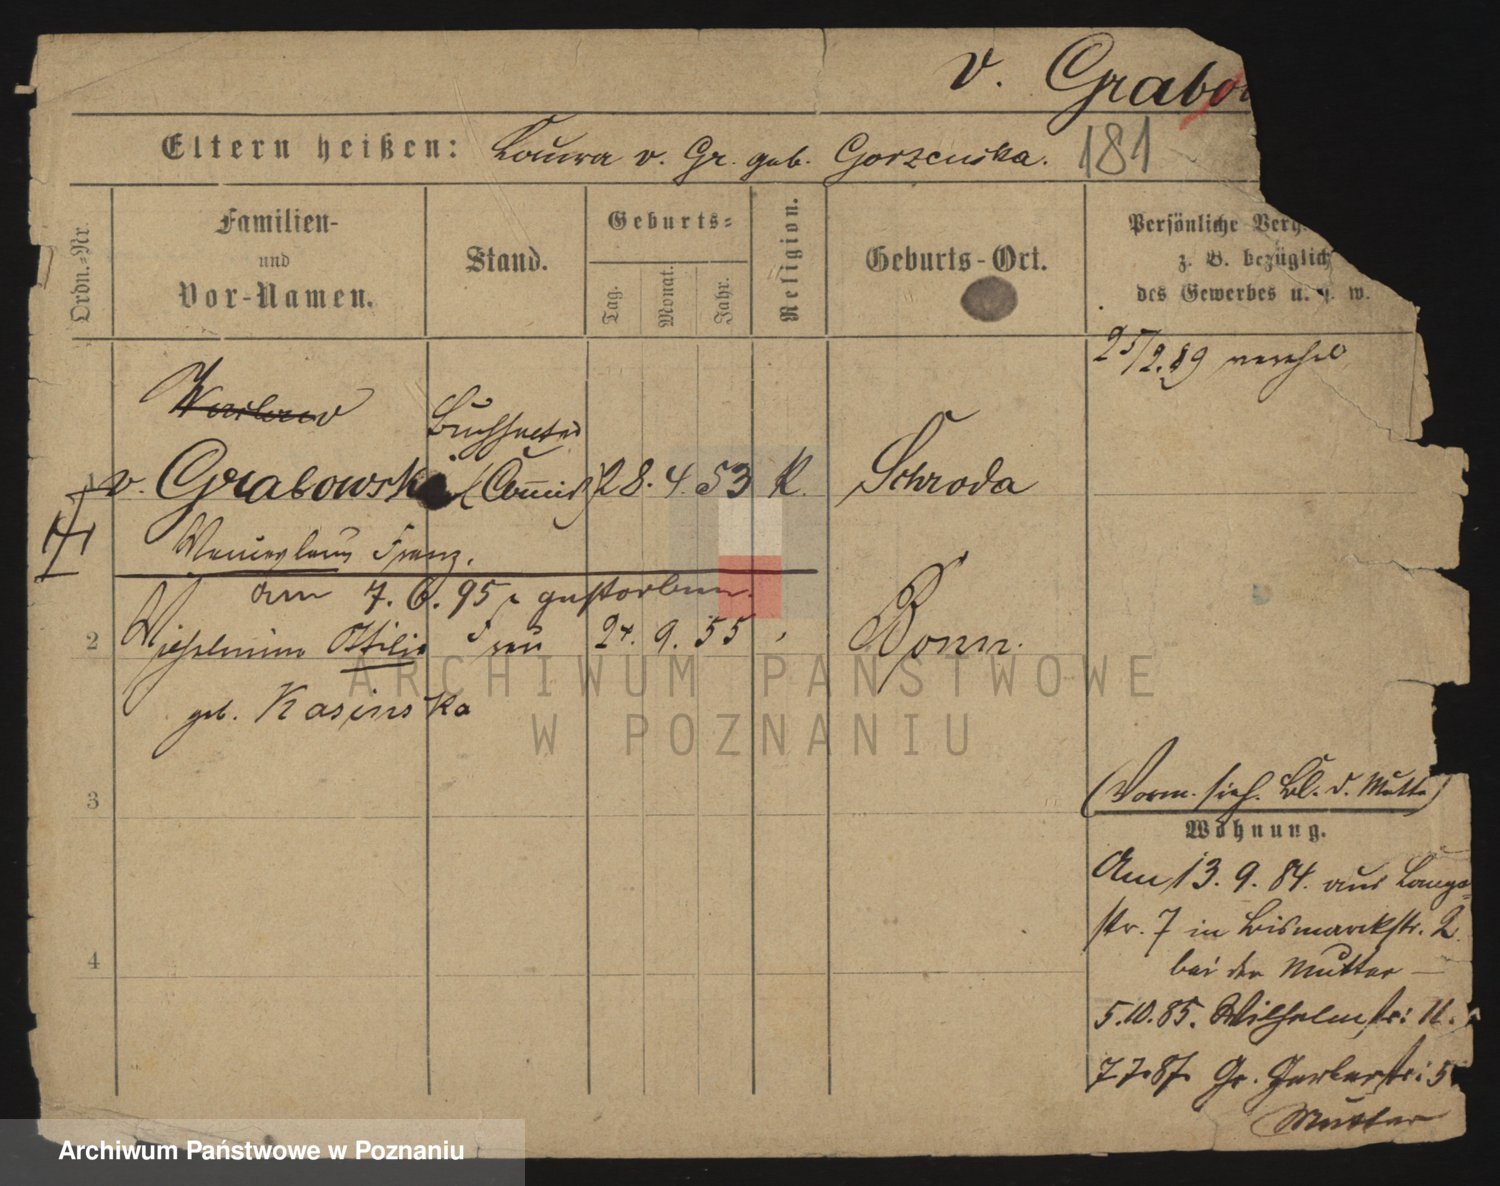 v. Grabow
Eltern heißen: Laura v. Gr. geb. Gorzenska.
181
Ordn.-Nr.
Familien-
und
Vor-Namen.
Stand.
Geburts-
Tag.
Monat.
Jahr.
Religion.
Geburts-Ort.
Persönliche Verh
z. B. bezüglich
des Gewerbes u. s. w.
25/2.89 vereh
1 v. Grabowski 28. 4. 53 K. Schroda
Franz.
am 7. 6. 95 gestorben.
2 Wilhelmine Ottilie Frau 24. 9. 55 Bonn.
geb. Kasinska
3
4
(Vorm. sieh. Bl. d. Mutter)
Wohnung.
Am 13. 9. 84. aus Lange-
str. 7 in Bismarckstr. 2.
bei der Mutter —
5.10.85. Wilhelmstr: 11.
7.7.87. Gr. Gerberstr: 5
Mutter
ARCHIWUM PAŃSTWOWE
W POZNANIU
Archiwum Państwowe w Poznaniu